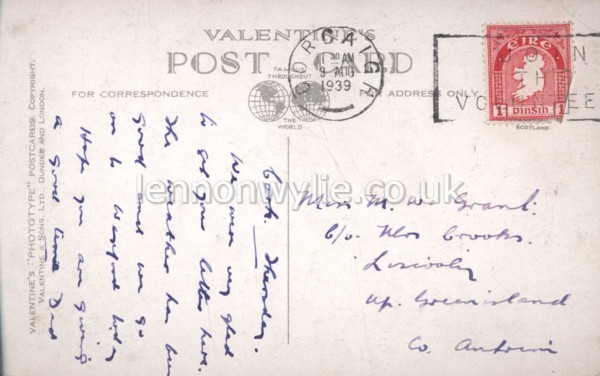 VALENTINE'S
POST CARD
FAMOUS
THROUGHOUT
THE
WORLD
FOR CORRESPONDENCE
ADDRESS ONLY
CORCAIGH
30 AM
9 AUG
1939
JOIN
THE
VOL
EE
éIRe
1 PINSIN 1
SCOTLAND
VALENTINE'S "PHOTOTYPE" POSTCARDS. COPYRIGHT.
VALENTINE & SONS, LTD., DUNDEE AND LONDON.
Cork. Thursday.
We were very glad
to get your letter here.
The weather has been
good and we go
on to Wexford today
Hope you are having
a good time Dad
Miss M. W. Grant.
C/o Mrs Crooks.
Up. Greenisland
Co. Antrim
lennonwylie.co.uk